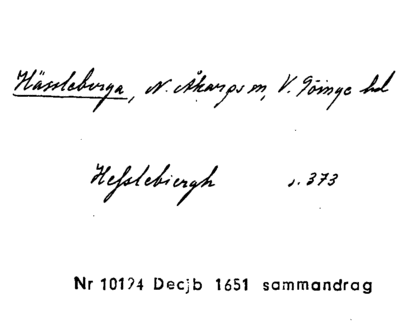 Hässleberga, N. Åkarps sn, V. Göinge hd
Hesslebiergh s. 373
Nr 10194 Decjb 1651 sammandrag